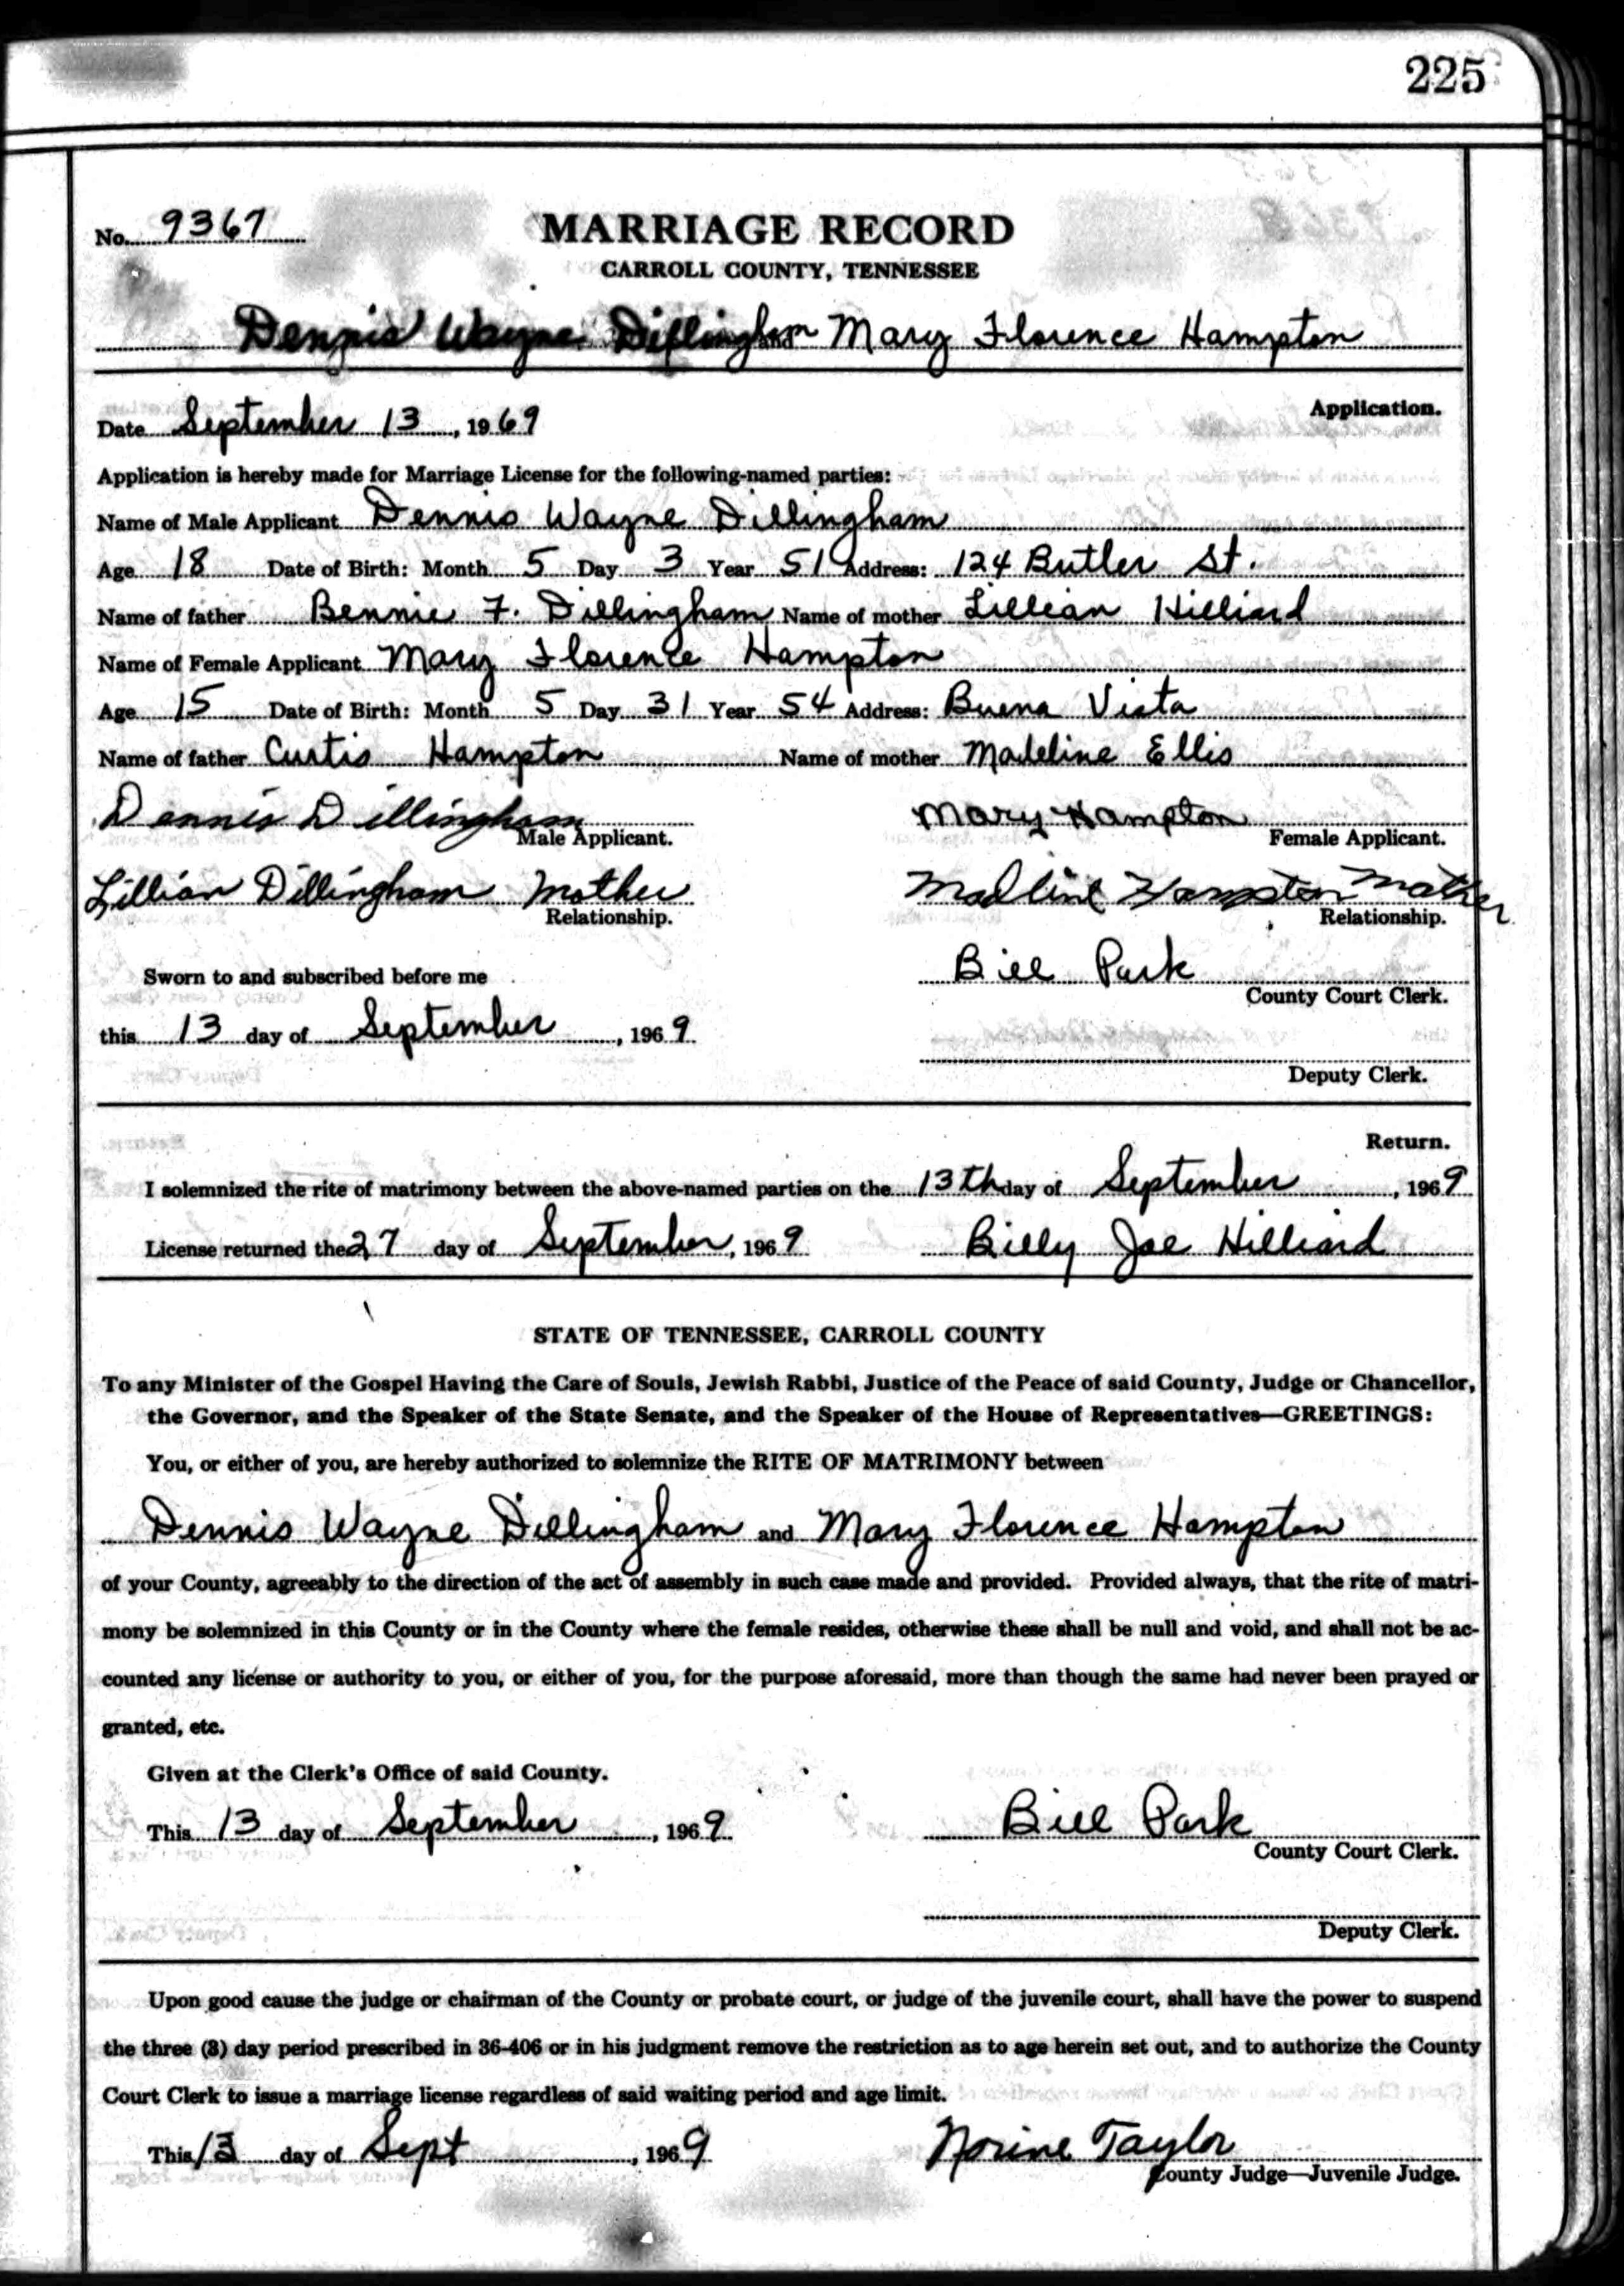 225
No. 9367
MARRIAGE RECORD
CARROLL COUNTY, TENNESSEE
Dennis Wayne Dillingham and Mary Florence Hampton
Application.
Date September 13, 1969
Application is hereby made for Marriage License for the following-named parties:
Name of Male Applicant Dennis Wayne Dillingham
Age 18 Date of Birth: Month 5 Day 3 Year 51 Address: 124 Butler St.
Name of father Bennie F. Dillingham Name of mother Lillian Hilliard
Name of Female Applicant Mary Florence Hampton
Age 15 Date of Birth: Month 5 Day 31 Year 54 Address: Buena Vista
Name of father Curtis Hampton Name of mother Madeline Ellis
Dennis Dillingham Mary Hampton
Male Applicant. Female Applicant.
Lillian Dillingham Mother Madline Hampton Mother
Relationship. Relationship.
Bill Park
Sworn to and subscribed before me County Court Clerk.
this 13 day of September, 1969
Deputy Clerk.
Return.
I solemnized the rite of matrimony between the above-named parties on the 13th day of September, 1969
License returned the 27 day of September, 1969 Billy Joe Hilliard
STATE OF TENNESSEE, CARROLL COUNTY
To any Minister of the Gospel Having the Care of Souls, Jewish Rabbi, Justice of the Peace of said County, Judge or Chancellor,
the Governor, and the Speaker of the State Senate, and the Speaker of the House of Representatives—GREETINGS:
You, or either of you, are hereby authorized to solemnize the RITE OF MATRIMONY between
Dennis Wayne Dillingham and Mary Florence Hampton
of your County, agreeably to the direction of the act of assembly in such case made and provided. Provided always, that the rite of matri-
mony be solemnized in this County or in the County where the female resides, otherwise these shall be null and void, and shall not be ac-
counted any license or authority to you, or either of you, for the purpose aforesaid, more than though the same had never been prayed or
granted, etc.
Given at the Clerk's Office of said County.
This 13 day of September, 1969 Bill Park
County Court Clerk.
Deputy Clerk.
Upon good cause the judge or chairman of the County or probate court, or judge of the juvenile court, shall have the power to suspend
the three (3) day period prescribed in 36-406 or in his judgment remove the restriction as to age herein set out, and to authorize the County
Court Clerk to issue a marriage license regardless of said waiting period and age limit.
This 13 day of Sept, 1969 Norine Taylor
County Judge—Juvenile Judge.